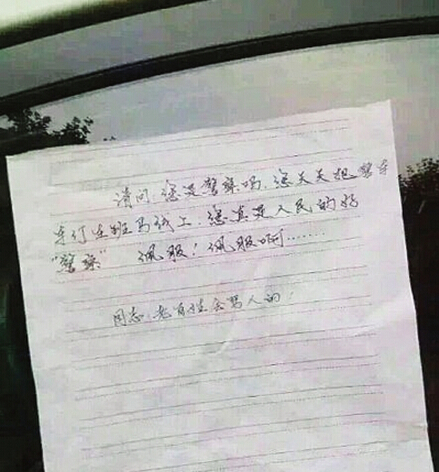 请问,您是警察吗,您天天把警车
车停在班马线上,您真是人民的好
“警察” 佩服!佩服啊……
同志,老百姓会骂人的!